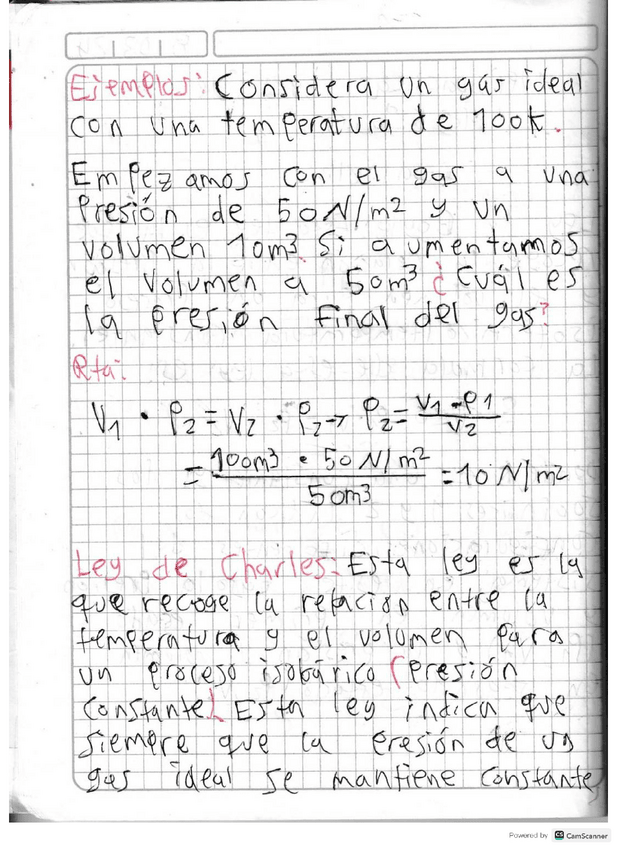 Ejemplos: Considera un gas ideal
con una temperatura de 100k.
Empezamos con el gas a una
Presión de 50N/m2 y un
volumen 10m3. Si aumentamos
el volumen a 50m3 ¿Cuál es
la presión final del gas?
Rta:
V1 · P2 = V2 · P2 → P2 = V1 - P1 / V2
= 100m3 · 50 N/m2 / 50m3 = 10 N/m2
Ley de Charles: Esta ley es la
que recoge la relación entre la
temperatura y el volumen para
un proceso isobárico (presión
constante). Esta ley indica que
siempre que la presión de un
gas ideal se mantiene constante
Powered by CS CamScanner